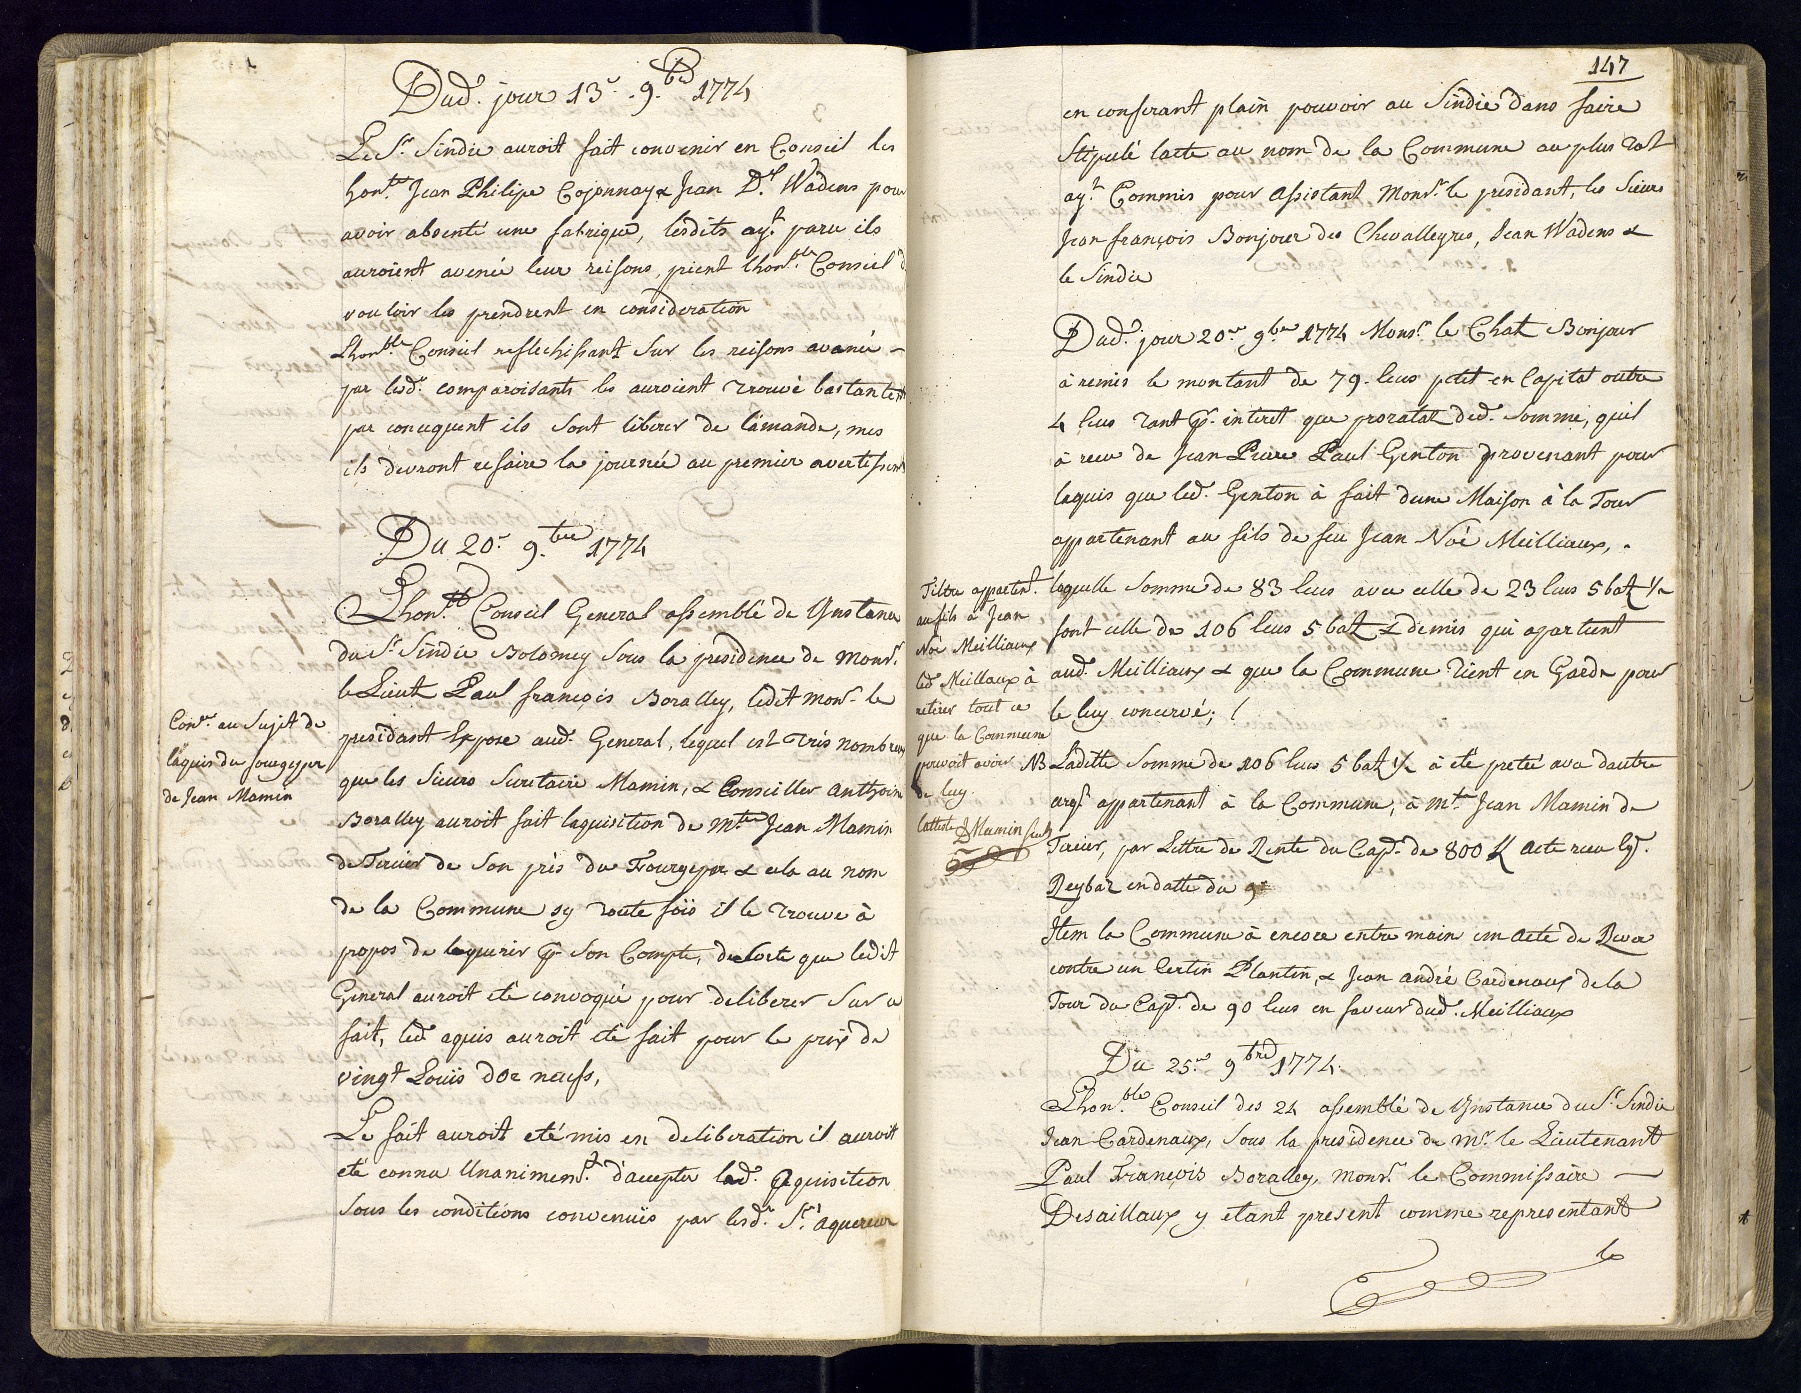 Dud. jour 13e. 9.bre 1774
Le Sr. Sindic auroit fait convenir en Conseil les
hon.tes Jean Philipe Cojonnay & Jean D.l Wadens pour
avoir absenté une fabrique, lesdits ay.t paru ils
auroient avencé leur reisons, prient lhon.ble Conseil
vouloir les prendrent en consideration
Lhon.ble Conseil reflechissant Sur les reisons avancé —
par lesd. comparoisants les auroient trouvé bastantes
par consequent ils Sont liberer de lámande, mes
ils devront refaire la journée au premier avertissem
Du 20e. 9.bre 1774
Lhon.ble Conseil General assemblé de L'Instance
du Sr. Sindic Bolomey Sous la presidence de Monsr.
le Lieut Paul françois Boralley, ledit Monr. le
presidant Expose aud. General, lequel est très nombreux
Con.nce au Sujet de
láquis du fourgeyper
de Jean Mamin
que les Sieurs Secretaire Mamin, & Conseiller Anthoine
Boralley auroit fait laquisition de M.tre Jean Mamin
de Ternier de Son prés du Fourgeyper & cela au nom
de la Commune sy toute fois il le trouve à
propos de laquerir pr. Son Compte, de Sorte que ledit
General auroit eté convoqué pour deliberer Sur ce
fait, led. aquis auroit eté fait pour le prix de
vingt Louis dOr neufs,
Le fait auroit eté mis en deliberation il auroit
eté connu Unanimem.t d'accepter lad. aquisition
Sous les conditions convenuës par lesd.ts Srs. aquereur
147
en conferant plain pouvoir au Sindic dans faire
Stipulé lacte au nom de la Commune au plus tot
ay.t Commis pour Assistant Monsr. le presidant, les Sieurs
Jean françois Bonjour des Chevalleyres, Jean Wadens &
le Sindic
Dud. jour 20me 9bre 1774 Monsr. le Chat. Bonjour
à remis le montant de 79. leus petit en Capital outre
4 leus tant pr. interet que proratat ded. Somme, quil
à recu de Jean Piere Paul Genton provenant pour
laquis que led. Genton à fait dune Maison à la Tour
appartenant au fils de feu Jean Noé Meilliaux, .
Tiltre apparten.t
au fils à Jean
Noé Meilliaux
led Meillaux à
retirer tout ce
que la Commune
pouvoit avoir
de luy.
latteste D Mamin Secr
laquelle Somme de 83 leus avec celle de 23 leus 5 batz ½
font celle de 106 leus 5 batz & demis qui apartient
aud. Meilliaux & que la Commune tient en Garde pour
le luy concervé; /
NB Ladite Somme de 106 leus 5 batz ½ à eté preté avec dautre
argt. appartenant à la Commune, à M.tre Jean Mamin de
Ternier, par Lettre de Rente du Cap. de 800 ₶ Acte recu Eg.
Reybaz en datte du 9e
Item la Commune à encore entre main un Acte de Revers
contre un Certin Plantin, & Jean André Cardenaux de la
Tour du Cap. de 90 leus en faveur dud. Meilliaux
Du 25me 9bre 1774.
Lhon.ble Conseil des 24 assemblé de L'Instance du Sr. Sindic
Jean Cardenaux, Sous la presidence de Mr. le Lieutenant
Paul François Boralley, Monsr. le Commissaire —
Desaillaux y etant present comme representant
le